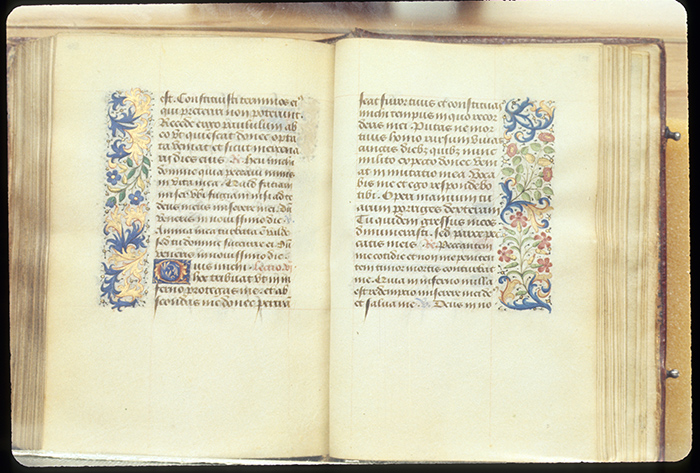 est. Constituisti terminos ei
qui preteriri non poterunt
Recede ergo paululum ab
eo vt quiescat donec opta
ta veniat et sicut mercena
rij dies eius. R. Heu michi
domine quia peccavi nimis
in vita mea. Quid faciam
miser vbi fugiam nisi ad te
deus meus miserere mei. du
veneris in novissimo die.
Anima mea turbata est valde
sed tu domine succurre ei. Du
veneris in novissimo die.
Quis michi. Lectio
hoc tribuat vt in in
ferno protegas me. et ab
scondas me donec pertra
seat furor tuus et constituas
michi tempus in quo recor
deris mei. Putas ne mor
tuus homo rursum vivat
cunctis dieb quib nunc
milito expecto donec veni
at immutatio mea. Voca
bis me et ego respondebo
tibi. Operi manuum tu
arum porriges dexteram
Tu quidem gressus meos
dinumerasti. sed parce pec
catis meis. R. Peccantem
me cotidie et non me peniten
tem timor mortis conturbat
me. Quia in inferno nulla
est redemptio miserere mei de
et salva me. V. Deus in no